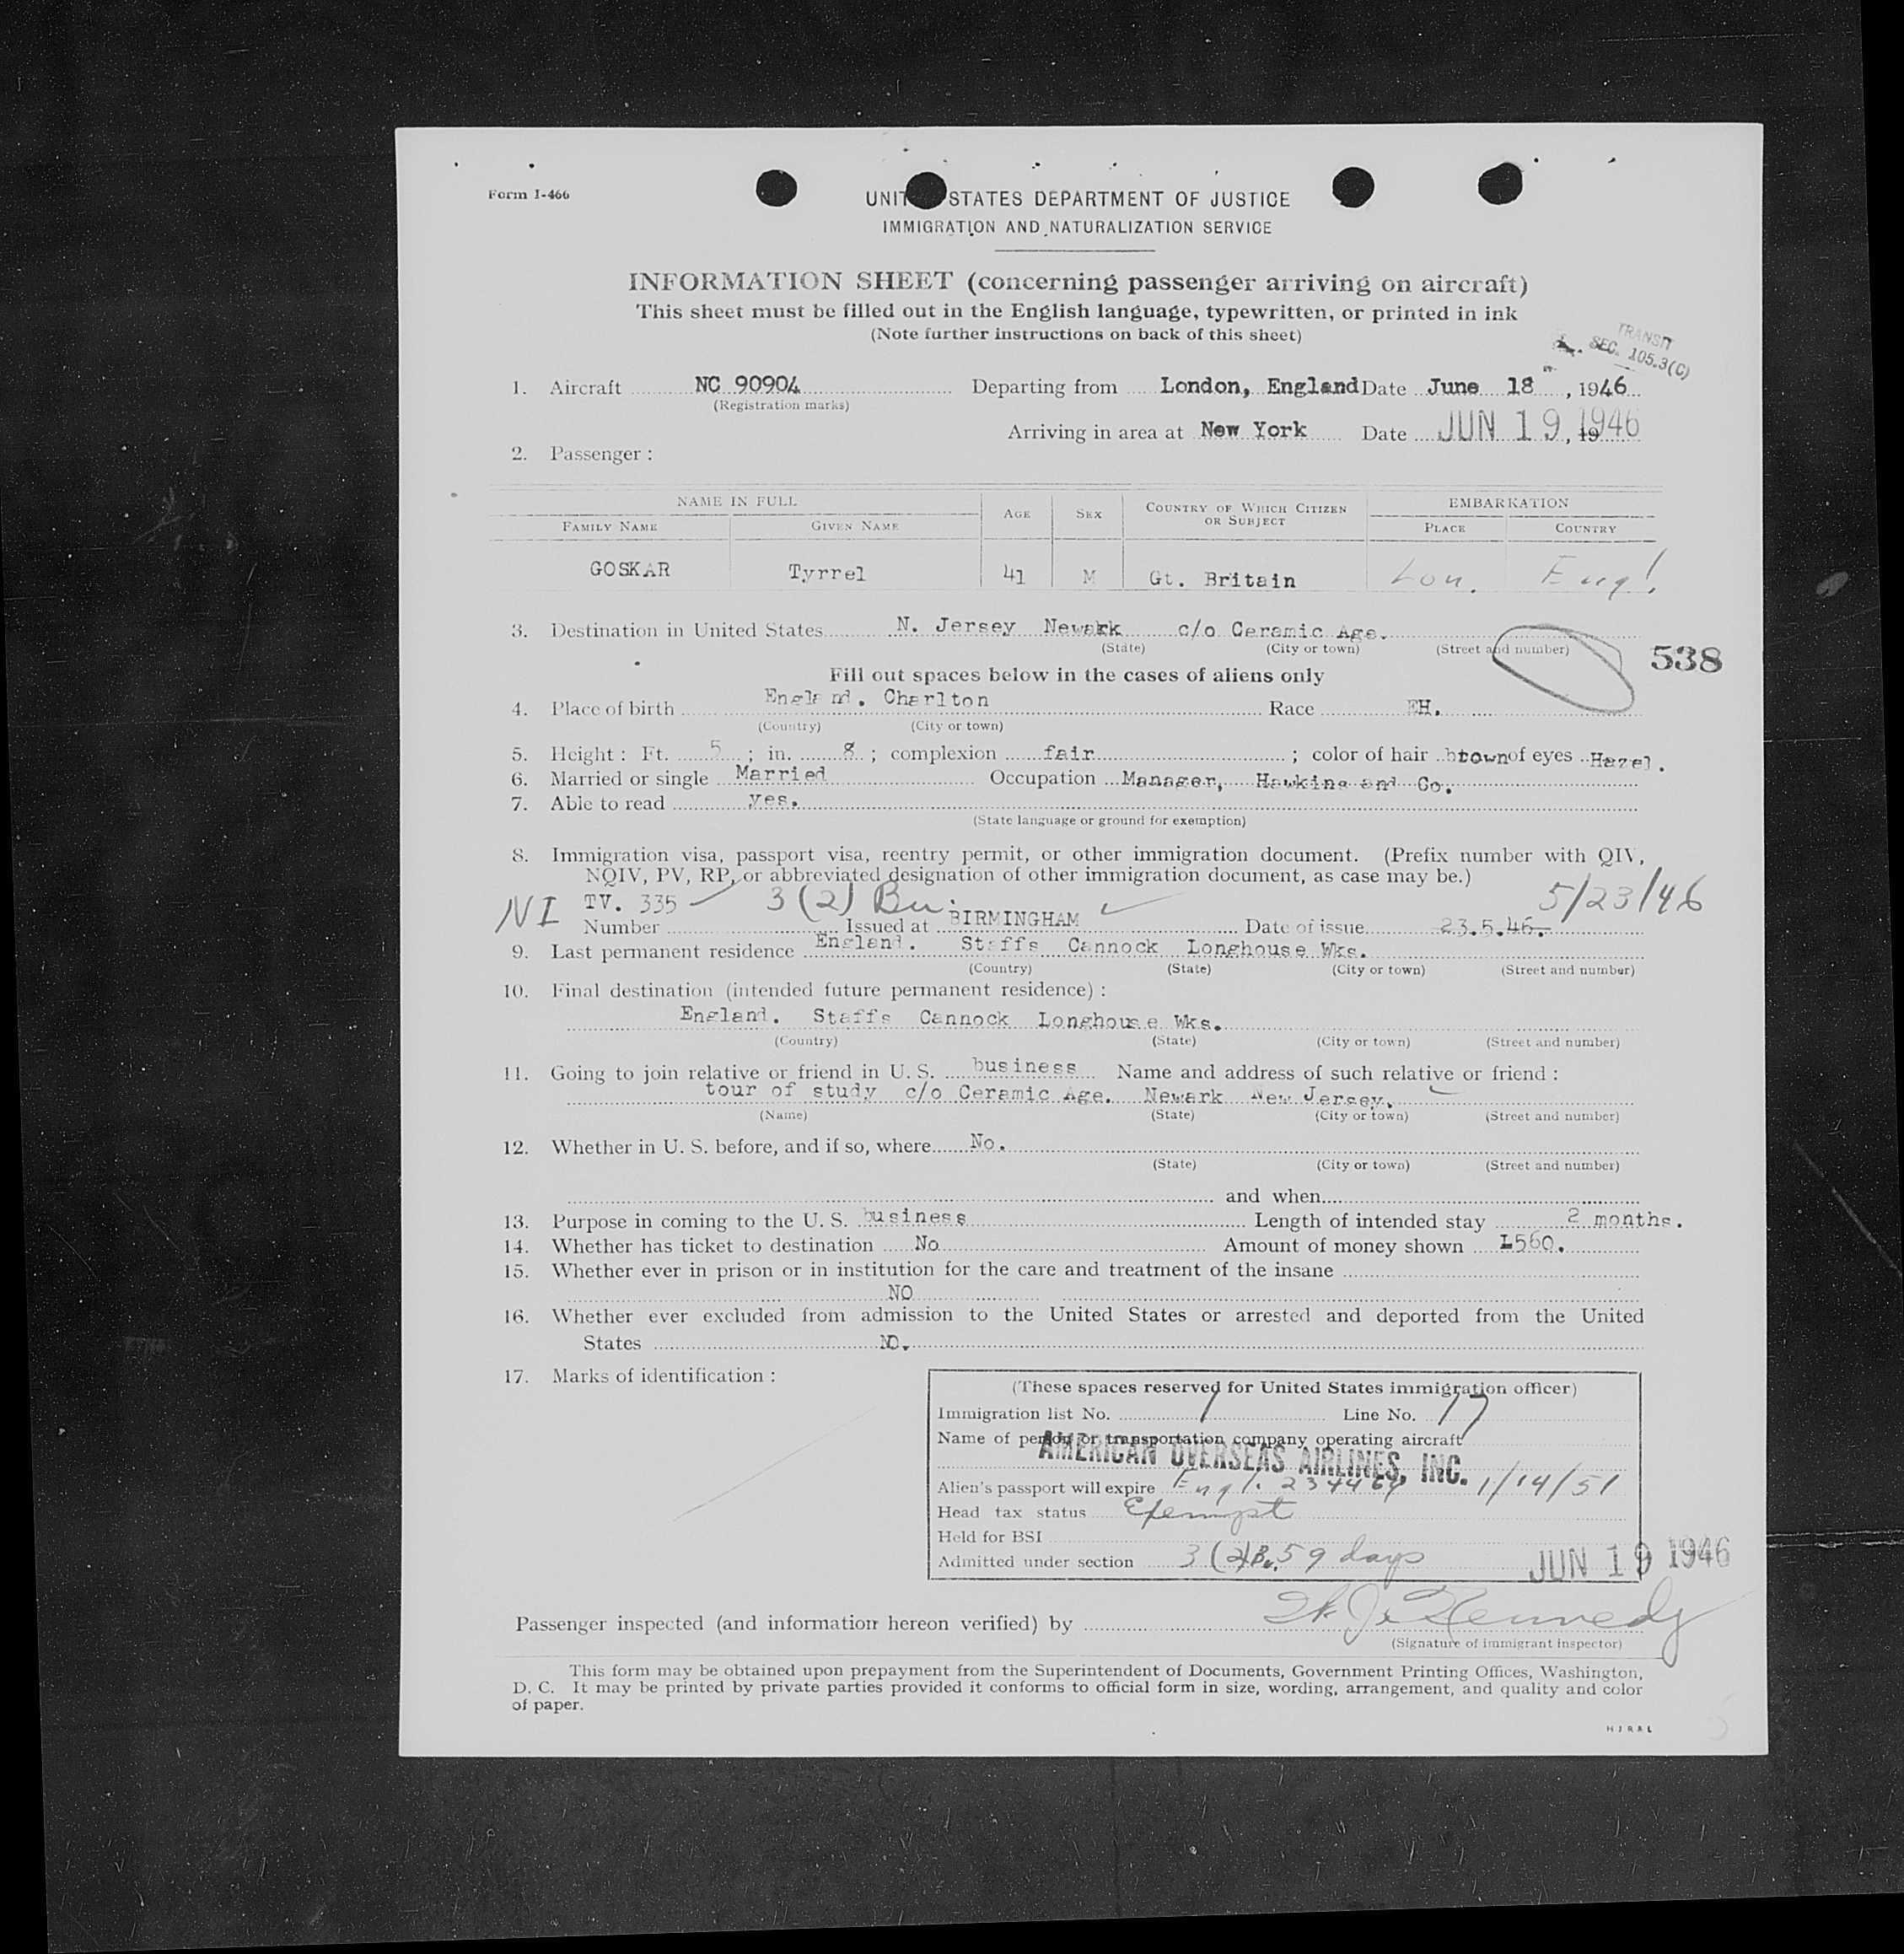 Form I-466
UNITED STATES DEPARTMENT OF JUSTICE
IMMIGRATION AND NATURALIZATION SERVICE
INFORMATION SHEET (concerning passenger arriving on aircraft)
This sheet must be filled out in the English language, typewritten, or printed in ink
(Note further instructions on back of this sheet)
TRANSIT
SEC. 105.3(C)
1. Aircraft NC 90904 Departing from London, England Date June 18, 1946
(Registration marks)
Arriving in area at New York Date JUN 19 1946, 19
2. Passenger:
NAME IN FULL AGE SEX COUNTRY OF WHICH CITIZEN OR SUBJECT EMBARKATION
FAMILY NAME GIVEN NAME PLACE COUNTRY
GOSKAR Tyrrel 41 M Gt. Britain Lon. Engl.
3. Destination in United States N. Jersey Newark c/o Ceramic Age.
(State) (City or town) (Street and number)
538
Fill out spaces below in the cases of aliens only
4. Place of birth England. Charlton Race EH.
(Country) (City or town)
5. Height: Ft. 5; in. 8; complexion fair; color of hair brown of eyes Hazel.
6. Married or single Married Occupation Manager, Hawkins and Co.
7. Able to read yes.
(State language or ground for exemption)
8. Immigration visa, passport visa, reentry permit, or other immigration document. (Prefix number with QIV,
NQIV, PV, RP, or abbreviated designation of other immigration document, as case may be.)
NI TV. 335 3(2) Bu. 5/23/46
Number Issued at BIRMINGHAM Date of issue 23.5.46.
9. Last permanent residence England. Staffs Cannock Longhouse Wks.
(Country) (State) (City or town) (Street and number)
10. Final destination (intended future permanent residence):
England. Staffs Cannock Longhouse Wks.
(Country) (State) (City or town) (Street and number)
11. Going to join relative or friend in U. S. business Name and address of such relative or friend:
tour of study c/o Ceramic Age. Newark New Jersey.
(Name) (State) (City or town) (Street and number)
12. Whether in U. S. before, and if so, where No.
(State) (City or town) (Street and number)
and when
13. Purpose in coming to the U. S. business Length of intended stay 2 months.
14. Whether has ticket to destination No Amount of money shown £560.
15. Whether ever in prison or in institution for the care and treatment of the insane
NO
16. Whether ever excluded from admission to the United States or arrested and deported from the United
States NO.
17. Marks of identification:
(These spaces reserved for United States immigration officer)
Immigration list No. 1 Line No. 17
Name of person or transportation company operating aircraft
AMERICAN OVERSEAS AIRLINES, INC.
Alien's passport will expire Engl. 234464 1/14/51
Head tax status Exempt
Held for BSI
Admitted under section 3(2)Bu. 59 days JUN 19 1946
Passenger inspected (and information hereon verified) by Kennedy
(Signature of immigrant inspector)
This form may be obtained upon prepayment from the Superintendent of Documents, Government Printing Offices, Washington,
D. C. It may be printed by private parties provided it conforms to official form in size, wording, arrangement, and quality and color
of paper.